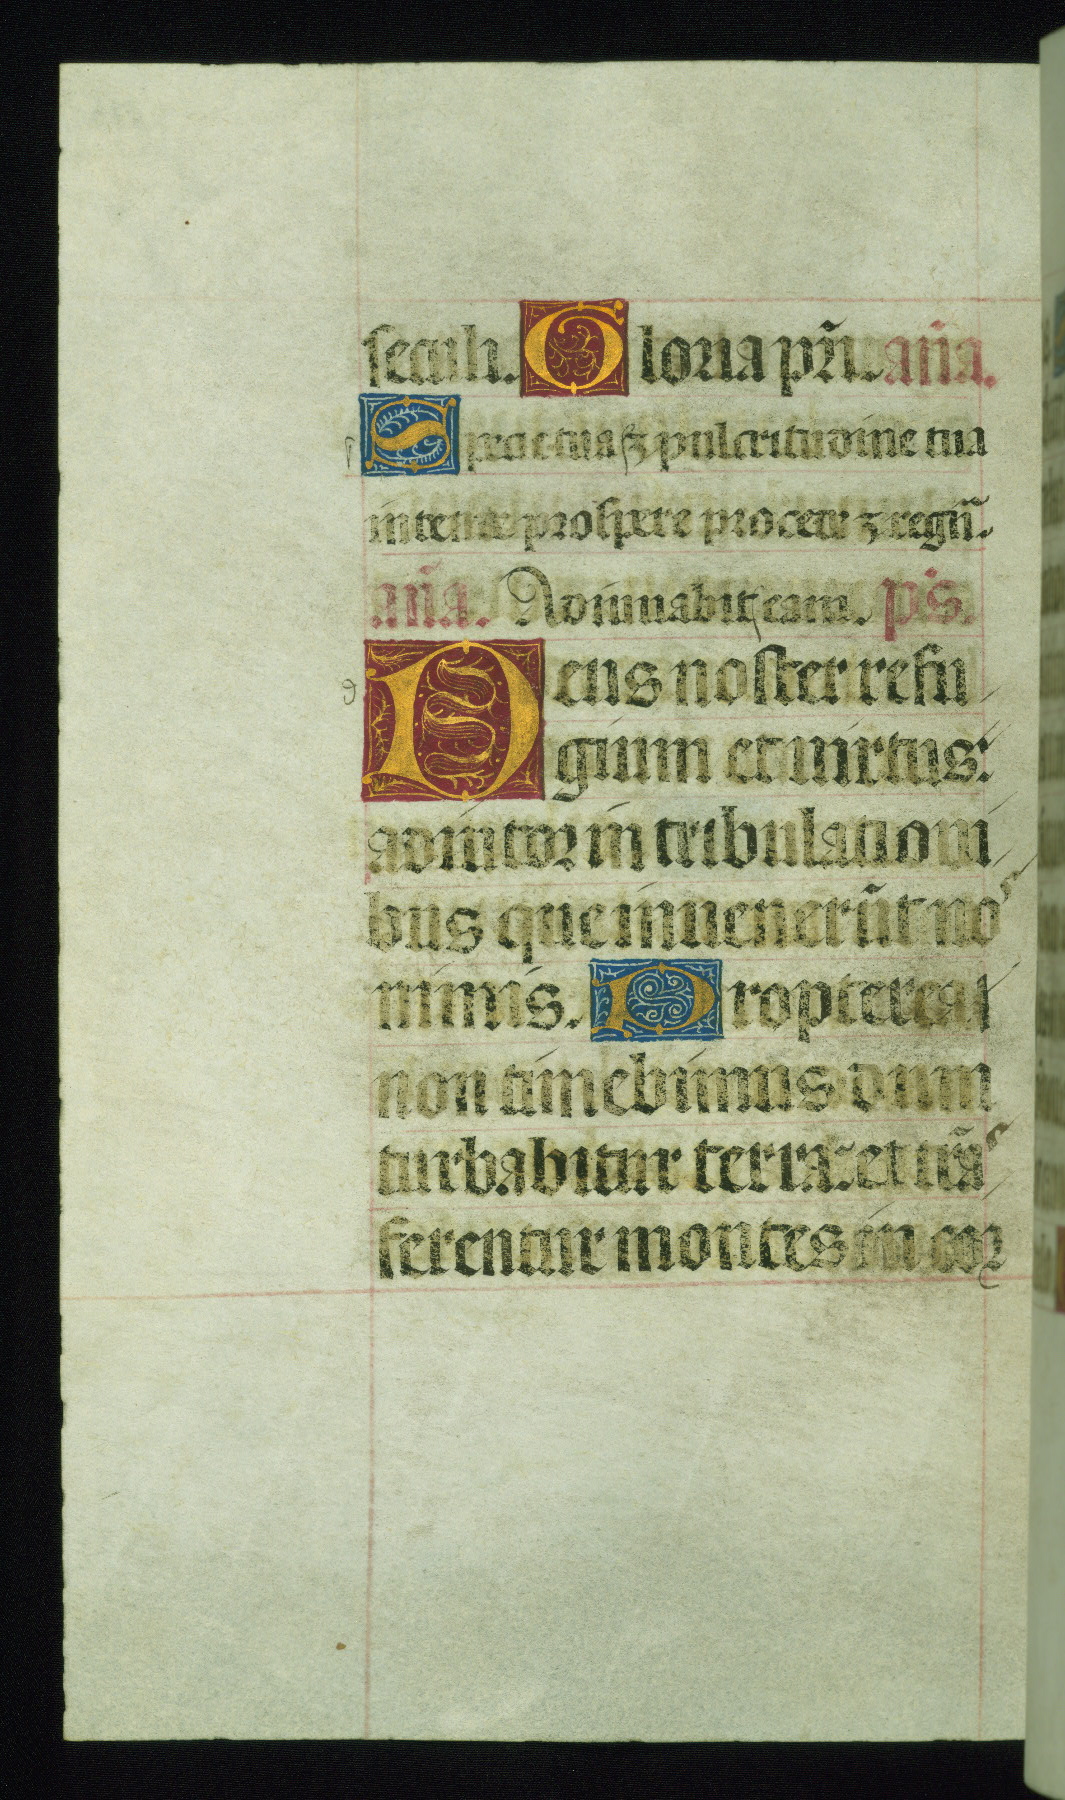 seculi. Gloria pr̃i. aña.
Specie tua ⁊ pulcritudine tua
intende prospere procede ⁊ regñ.
aña. Adiuuabit eam. ps̃.
Deus noster refu
gium et uirtus:
adiutor in tribulationi
bus que inuenerũt nos
nimis. Propterea
non timebimus dum
turbabitur terra: et trãs
ferentur montes in cor